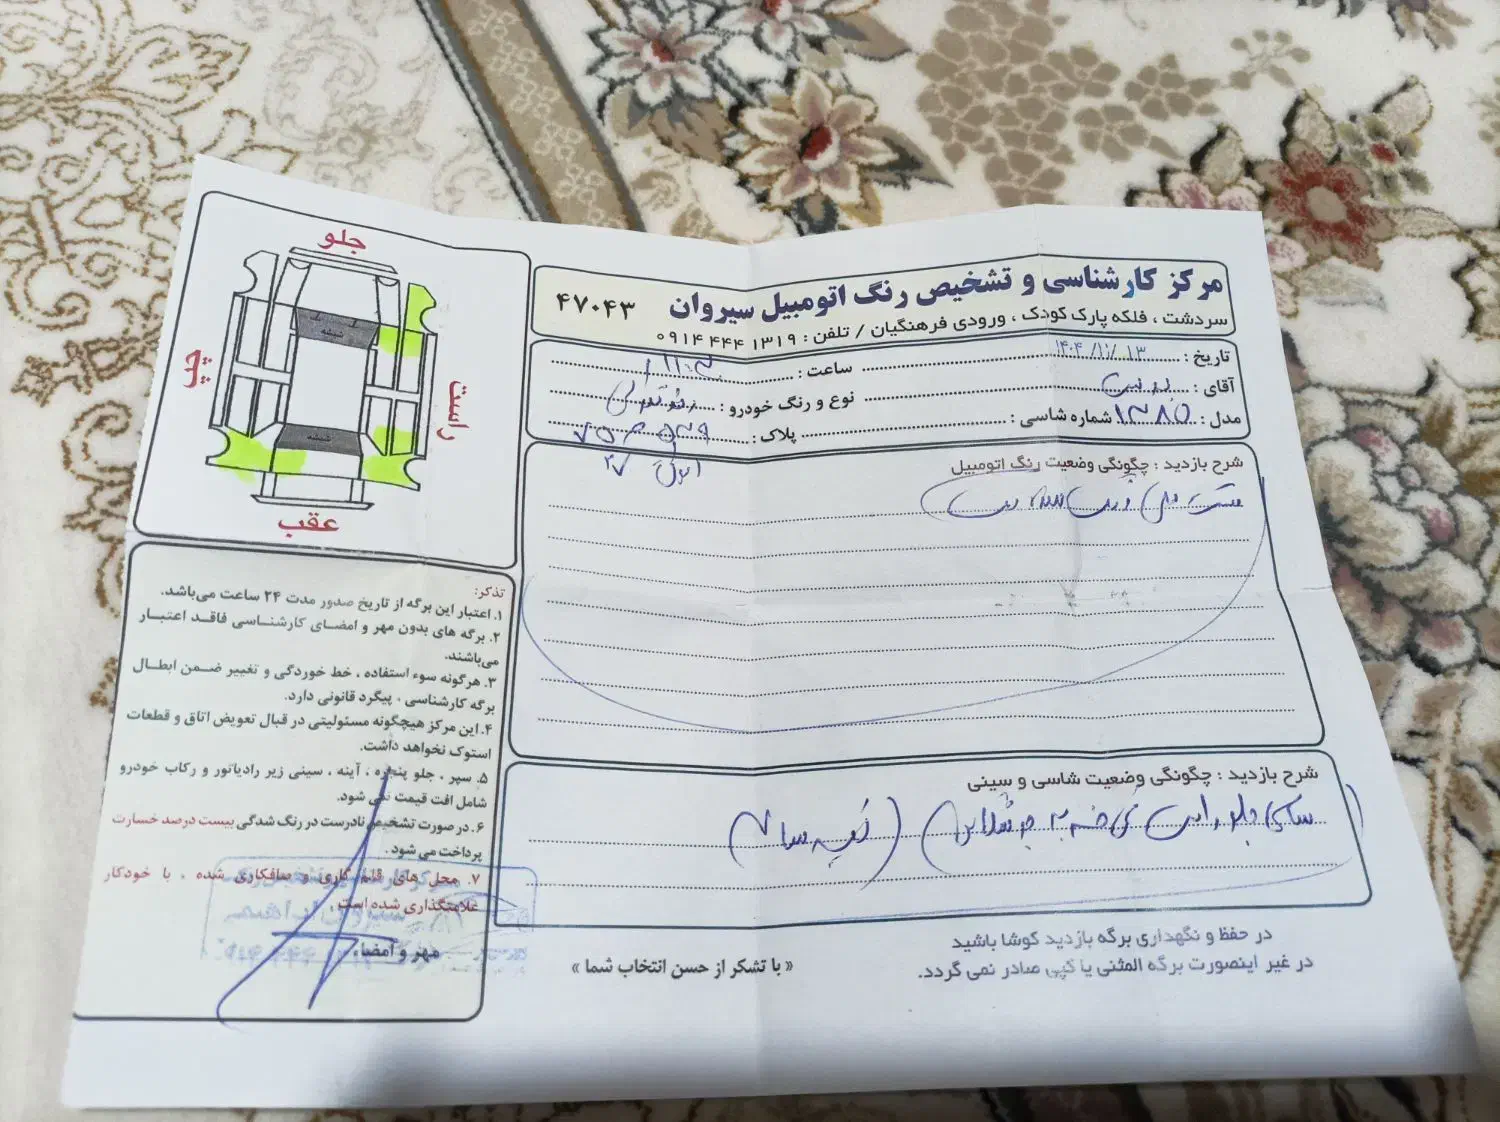 مرکز کارشناسی و تشخیص رنگ اتومبیل سیروان ۴۷۰۴۳
سردشت ، فلکه پارک کودک ، ورودی فرهنگیان / تلفن : ۱۳۱۹ ۴۴۴ ۰۹۱۴
تاریخ : ۱۴۰۴/۱۱/۱۳ ساعت :
آقای : نوع و رنگ خودرو :
مدل : ۱۳۸۵ شماره شاسی : پلاک :
جلو
شیشه
چپ
راست
شیشه
عقب
شرح بازدید : چگونگی وضعیت رنگ اتومبیل
شرح بازدید : چگونگی وضعیت شاسی و سینی
تذکر:
۱. اعتبار این برگه از تاریخ صدور مدت ۲۴ ساعت می‌باشد.
۲. برگه های بدون مهر و امضای کارشناسی فاقد اعتبار
می‌باشند.
۳. هرگونه سوء استفاده ، خط خوردگی و تغییر ضمن ابطال
برگه کارشناسی ، پیگرد قانونی دارد.
۴. این مرکز هیچگونه مسئولیتی در قبال تعویض اتاق و قطعات
استوک نخواهد داشت.
۵. سپر ، جلو پنجره ، آینه ، سینی زیر رادیاتور و رکاب خودرو
شامل افت قیمت نمی شود.
۶. در صورت تشخیص نادرست در رنگ شدگی بیست درصد خسارت
پرداخت می شود.
۷. محل های قلم کاری و صافکاری شده ، با خودکار
علامتگذاری شده است.
مهر و امضاء
« با تشکر از حسن انتخاب شما »
در حفظ و نگهداری برگه بازدید کوشا باشید
در غیر اینصورت برگه المثنی یا کپی صادر نمی گردد.